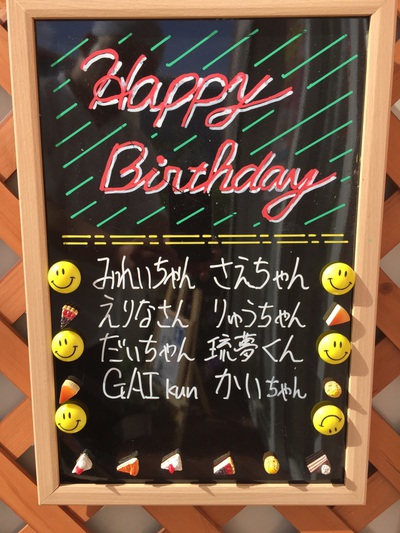 Happy
Birthday
みれいちゃん さえちゃん
えりなさん りゅうちゃん
だいちゃん 琉夢くん
GAI kun かいちゃん